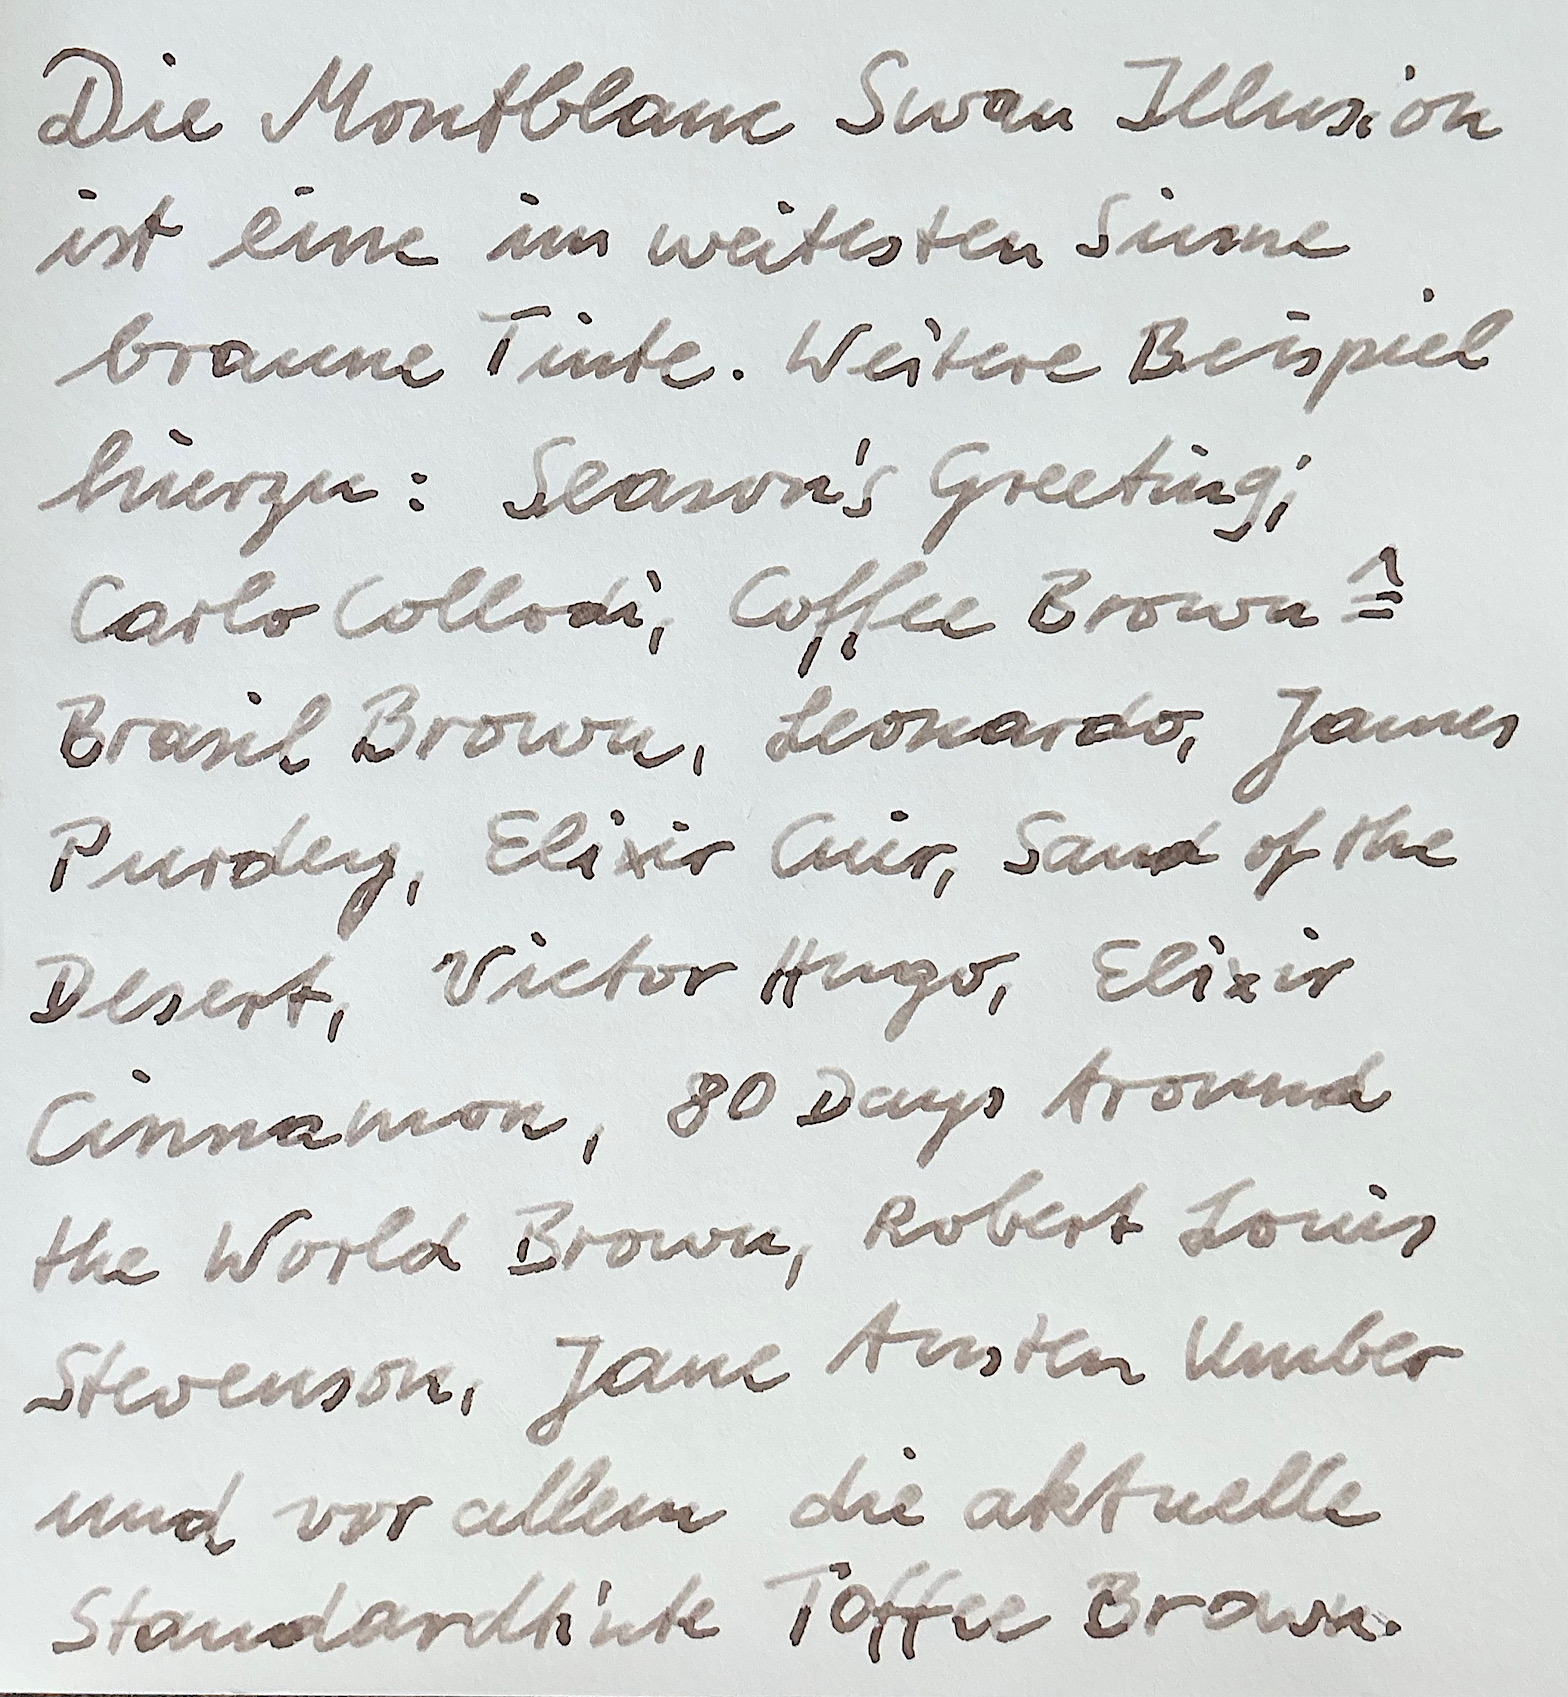 Die Montblanc Swan Illusion
ist eine im weitesten Sinne
braune Tinte. Weitere Beispiel
hierzu: Season's Greeting,
Carlo Collodi, Coffee Brown ≙
Brasil Brown, Leonardo, James
Purdey, Elixir Cuir, Sand of the
Desert, Victor Hugo, Elixir
Cinnamon, 80 Days Around
the World Brown, Robert Louis
Stevenson, Jane Austen Umber
und vor allem die aktuelle
Standardtinte Toffee Brown.